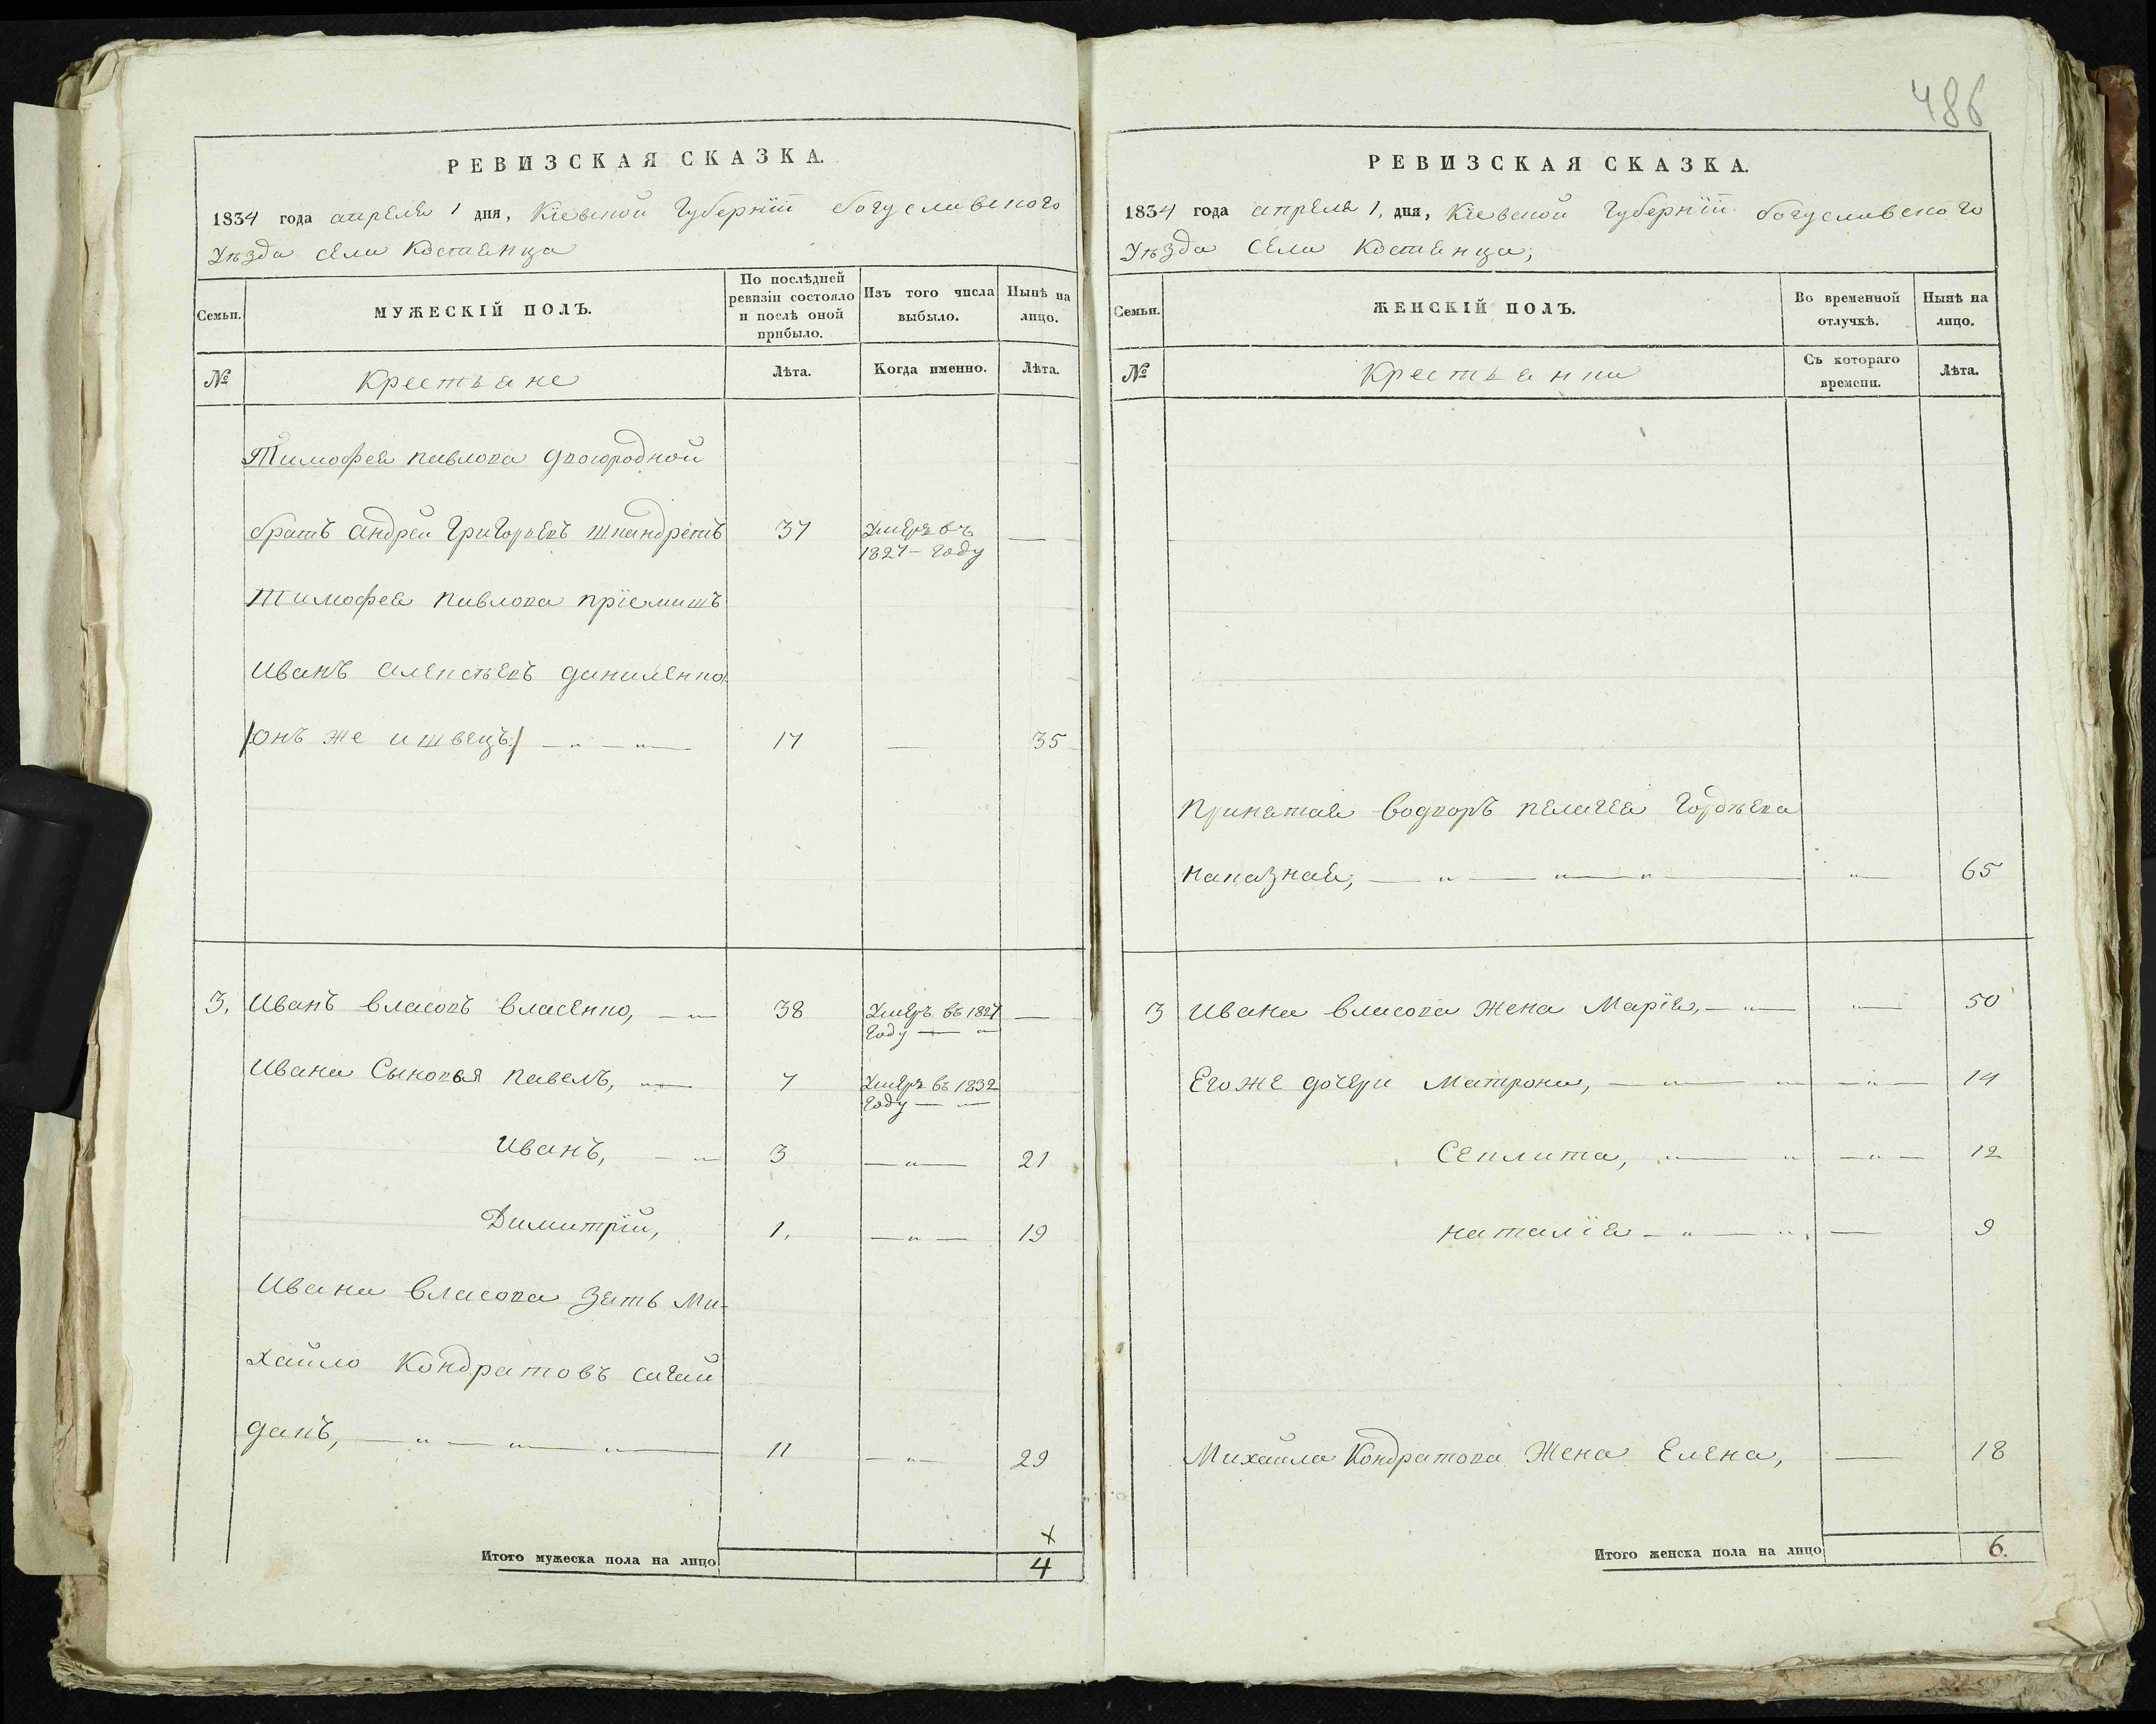 486
РЕВИЗСКАЯ СКАЗКА.
1834 года апреля 1 дня, Кіевской Губерніи богуславского
Уѣзда села Костенца
Семьи.
МУЖЕСКІЙ ПОЛЪ.
По послѣдней ревизіи состояло и послѣ оной прибыло.
Изъ того числа выбыло.
Нынѣ на лицо.
№
Крестьяне
Лѣта.
Когда именно.
Лѣта.
Тимофея павлова двоюродной
братъ андрей Григорьевъ шкандретъ 37 Умеръ въ 1827 Году —
Тимофея павлова пріемишъ
Иванъ алексѣевъ даниленко
/онъ же и швецъ/ 17 — 35
3. Иванъ власовъ власенко, 38 Умеръ въ 1827 Году —
Ивана Сыновья павелъ, 7 Умеръ въ 1832 Году
Иванъ, 3 — 21
Димитрій, 1, — 19
Ивана власова зять Ми-
хайло Кондратовъ сагай
дакъ, 11 — 29
х
Итого мужеска пола на лицо 4
РЕВИЗСКАЯ СКАЗКА.
1834 года апреля 1, дня, Кіевской Губерніи богуславского
Уѣзда села Костенца;
Семьи.
ЖЕНСКІЙ ПОЛЪ.
Во временной отлучкѣ.
Нынѣ на лицо.
№
Крестьянки
Съ котораго времени.
Лѣта.
Принятая водворъ пелагея Гордѣева
наказная, 65
3 Ивана власова жена Марія, 50
Его же дочери Матрона, 14
Секлита, 12
наталія 9
Михайла Кондратова Жена Елена, 18
Итого женска пола на лицо 6.